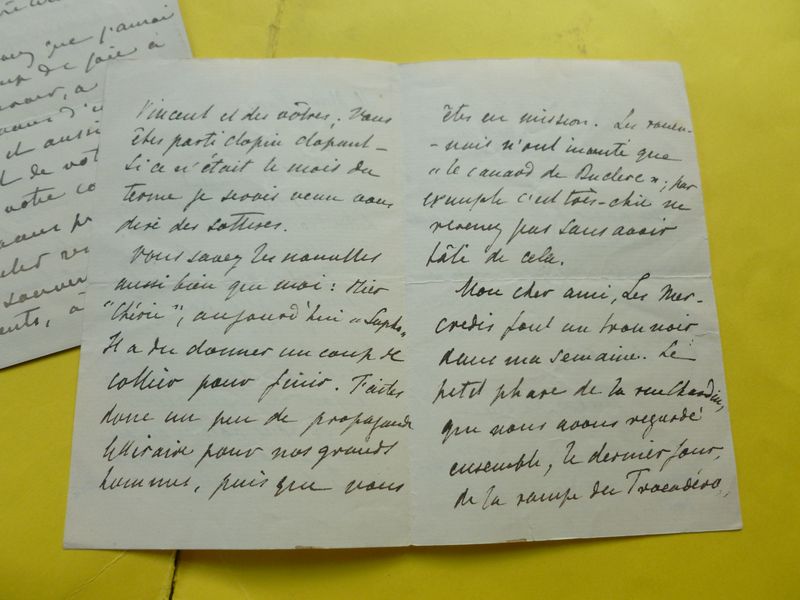 que j'aurai
de joie à
à
et aussi
de vot
votre co
souver
ents, à
Vincent et des vôtres. Vous
êtes parti clopin clopant –
Si ce n'était le mois du
terme je serais venu vous
dire des sottises.
Vous savez les nouvelles
aussi bien que moi : Hier
"Chérie", aujourd'hui "Sapho"
Il a dû donner un coup de
collier pour finir. Faites
donc un peu de propagande
littéraire pour nos grands
hommes, puis que vous
êtes en mission. Les rouen-
-nais n'ont inventé que
"le canard de Duclerc" ; par
exemple c'est très-chic ne
revenez pas sans avoir
tâté de cela.
Mon cher ami, Les Mer-
credis font un trou noir
dans ma semaine. Le
petit phare de la rue Chardin,
que nous avons regardé
ensemble, le dernier jour,
de la rampe du Trocadéro,